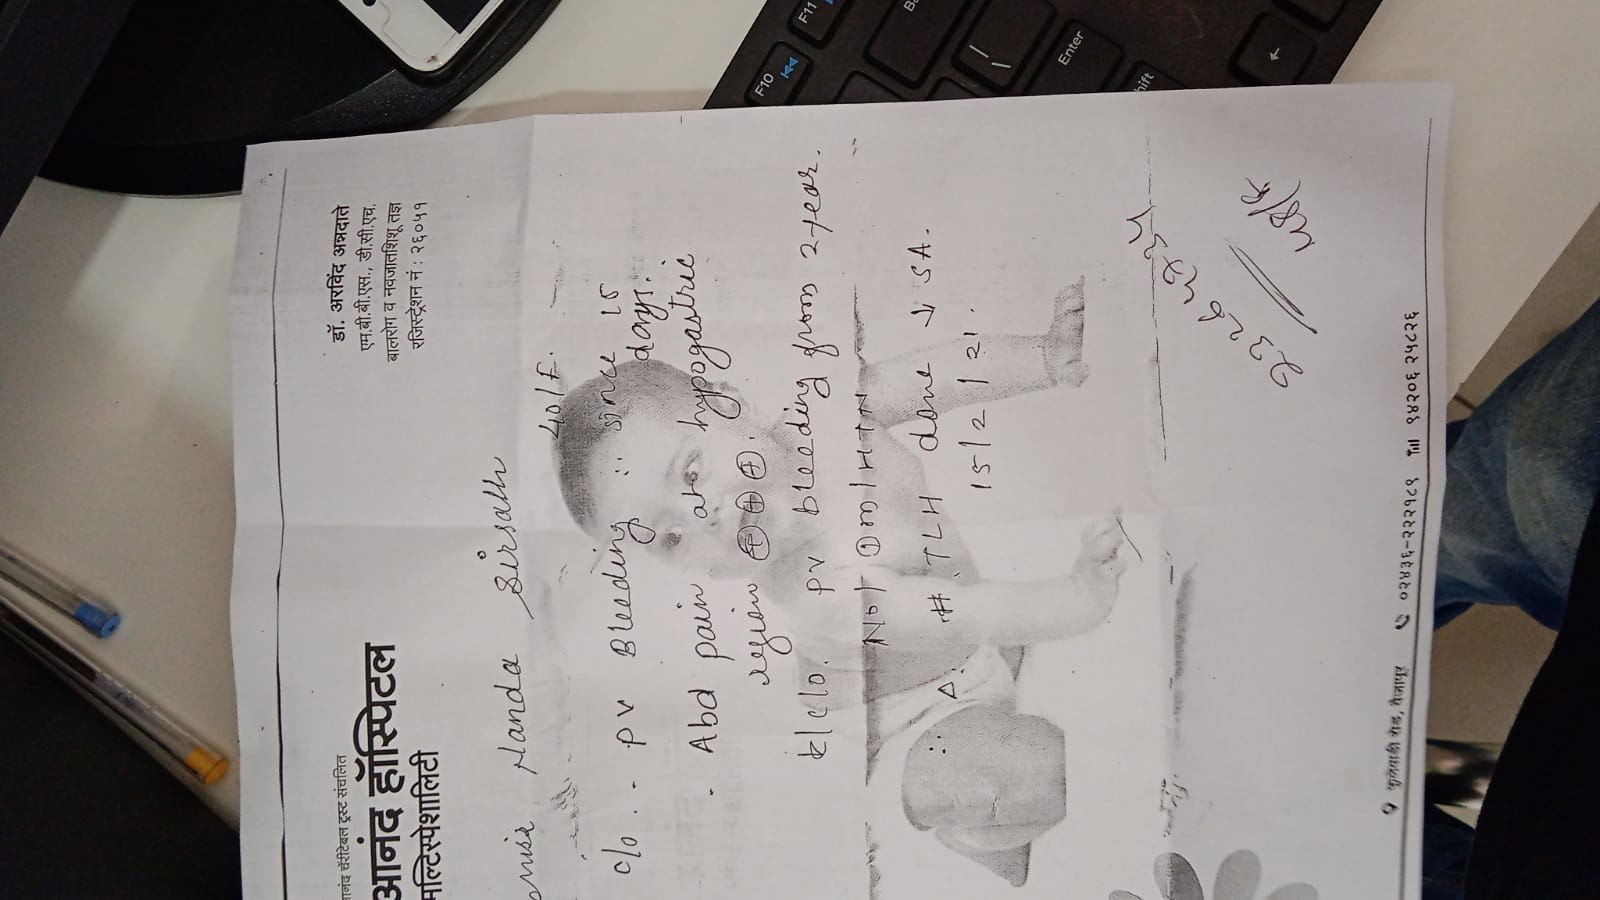 आनंद चॅरीटेबल ट्रस्ट संचलित
आनंद हॉस्पिटल
मल्टिस्पेशालिटी
डॉ. अरविंद अन्नदाते
एम.बी.बी.एस., डी.सी.एच.
बालरोग व नवजातशिशू तज्ञ
रजिस्ट्रेशन नं : २६०५१
Nanda Sirsath
40/F.
c/o. - PV Bleeding :: since 15 days.
- Abd pain at hypogastric
region ⊕ ⊕ ⊕.
k/c/o. PV bleeding from 2 year.
No/ Dm/HTN
Δ. # TLH done ↓ SA.
15/2/21.
०२४३६-२२२१८४ ९४२०३ २५८२६
F10
F11
Enter